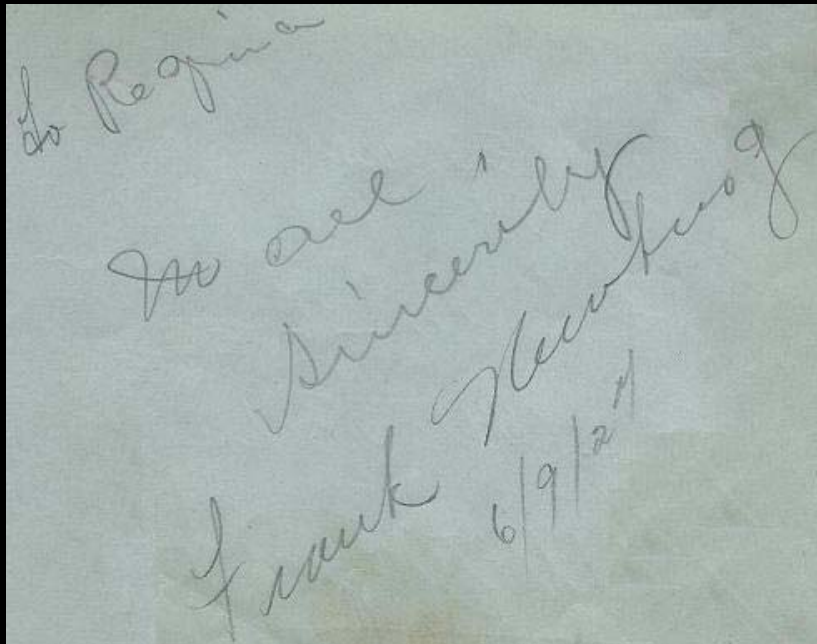 To Regina
In all
Sincerity
Frank
6/9/27